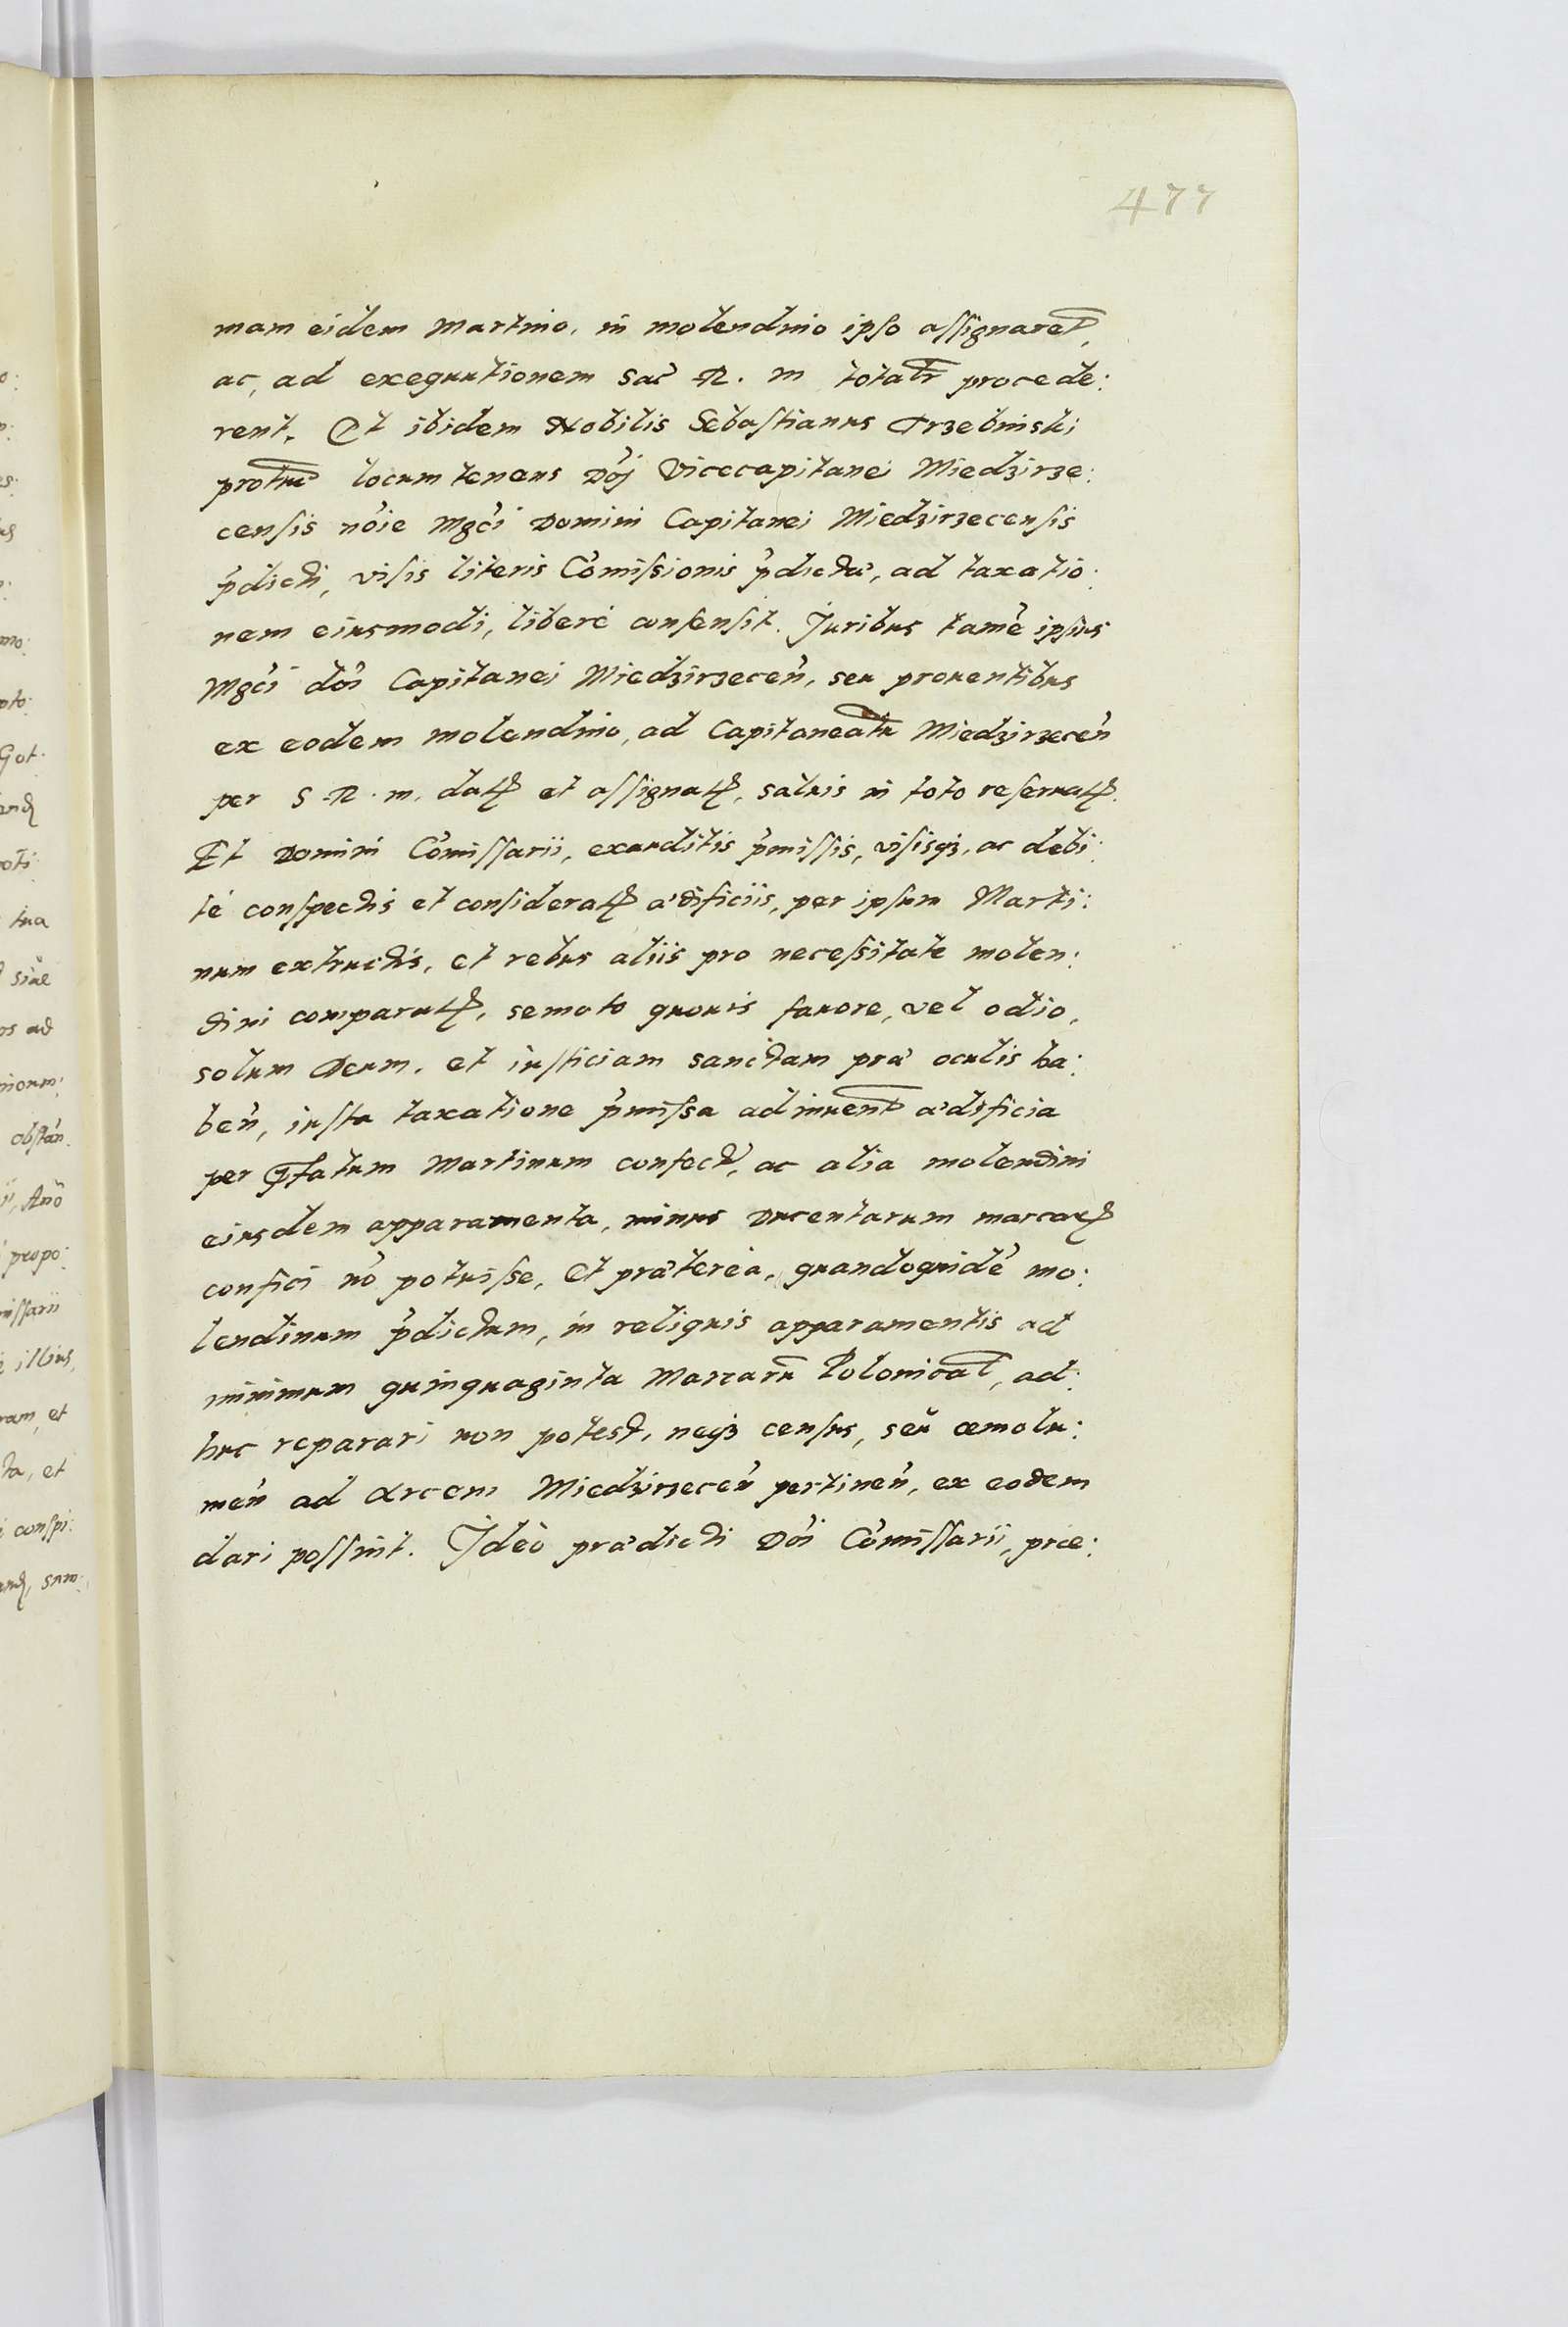 477
mam eidem Martino, in molendino ipso assignaret,
ac, ad exequutionem Sac R. M totatr procede:
rent. Et ibidem Nobilis Sebastianus Trzebinski
protuc locum tenens Dôj Vicecapitanei Miedzirze:
censis nôie Mgci Domini Capitanei Miedzirzecensis
pdicti, visis literis Cômissionis pdictæ, ad taxatio:
nem eiusmodi, liberè consensit. Juribus tamê ipsius
Mgci dôi Capitanei Miedzirzecen, seu prouentibus
ex eodem molendino, ad Capitaneatu Miedzirzecen
per S. R. M. datꝭ et assignatꝭ, saluis in toto reseruatꝭ.
Et Domini Cômissarii, exauditis pmissis, visisqꝫ, ac debi:
tè conspectis et consideratꝭ ædificiis, per ipsum Marti:
num extructis, et rebus aliis pro necessitate molen:
dini comparatꝭ, semoto quouis fauore, vel odio,
solum Deum, et iusticiam sanctam præ oculis ha:
ben, iusta taxatione pmissa adinuent ædificia
per Pfatum Martinum confect, ac alia molendini
eiusdem apparamenta, minus ducentarum marcarꝭ
confici nô potuisse, Et præterea, quandoquidê mo:
lendinum pdictum, in reliquis apparamentis ad
minimum quinquaginta Marcaru Polonical, ad:
huc reparari non potest, neqꝫ census, seu æmolu:
men ad Arcem Miedzirzecen pertinen, ex eodem
dari possint. Ideò prædicti Dôi Cômissarii, præ: